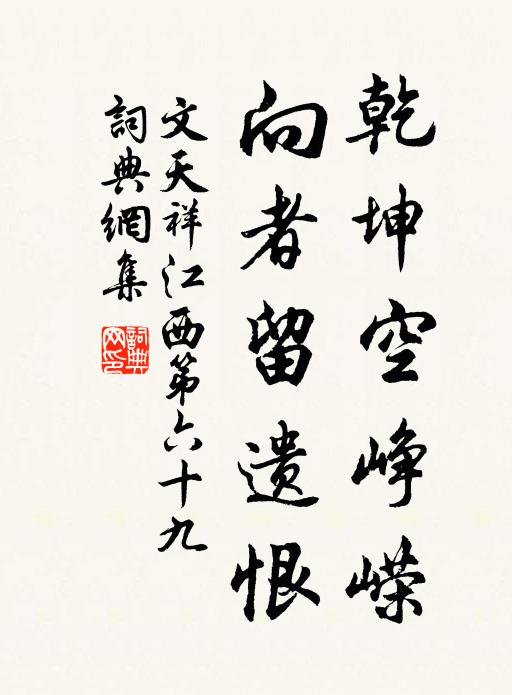 乾坤空峥嵘
向者留遗恨
文天祥江西第六十九
詞典網集
詞典网印